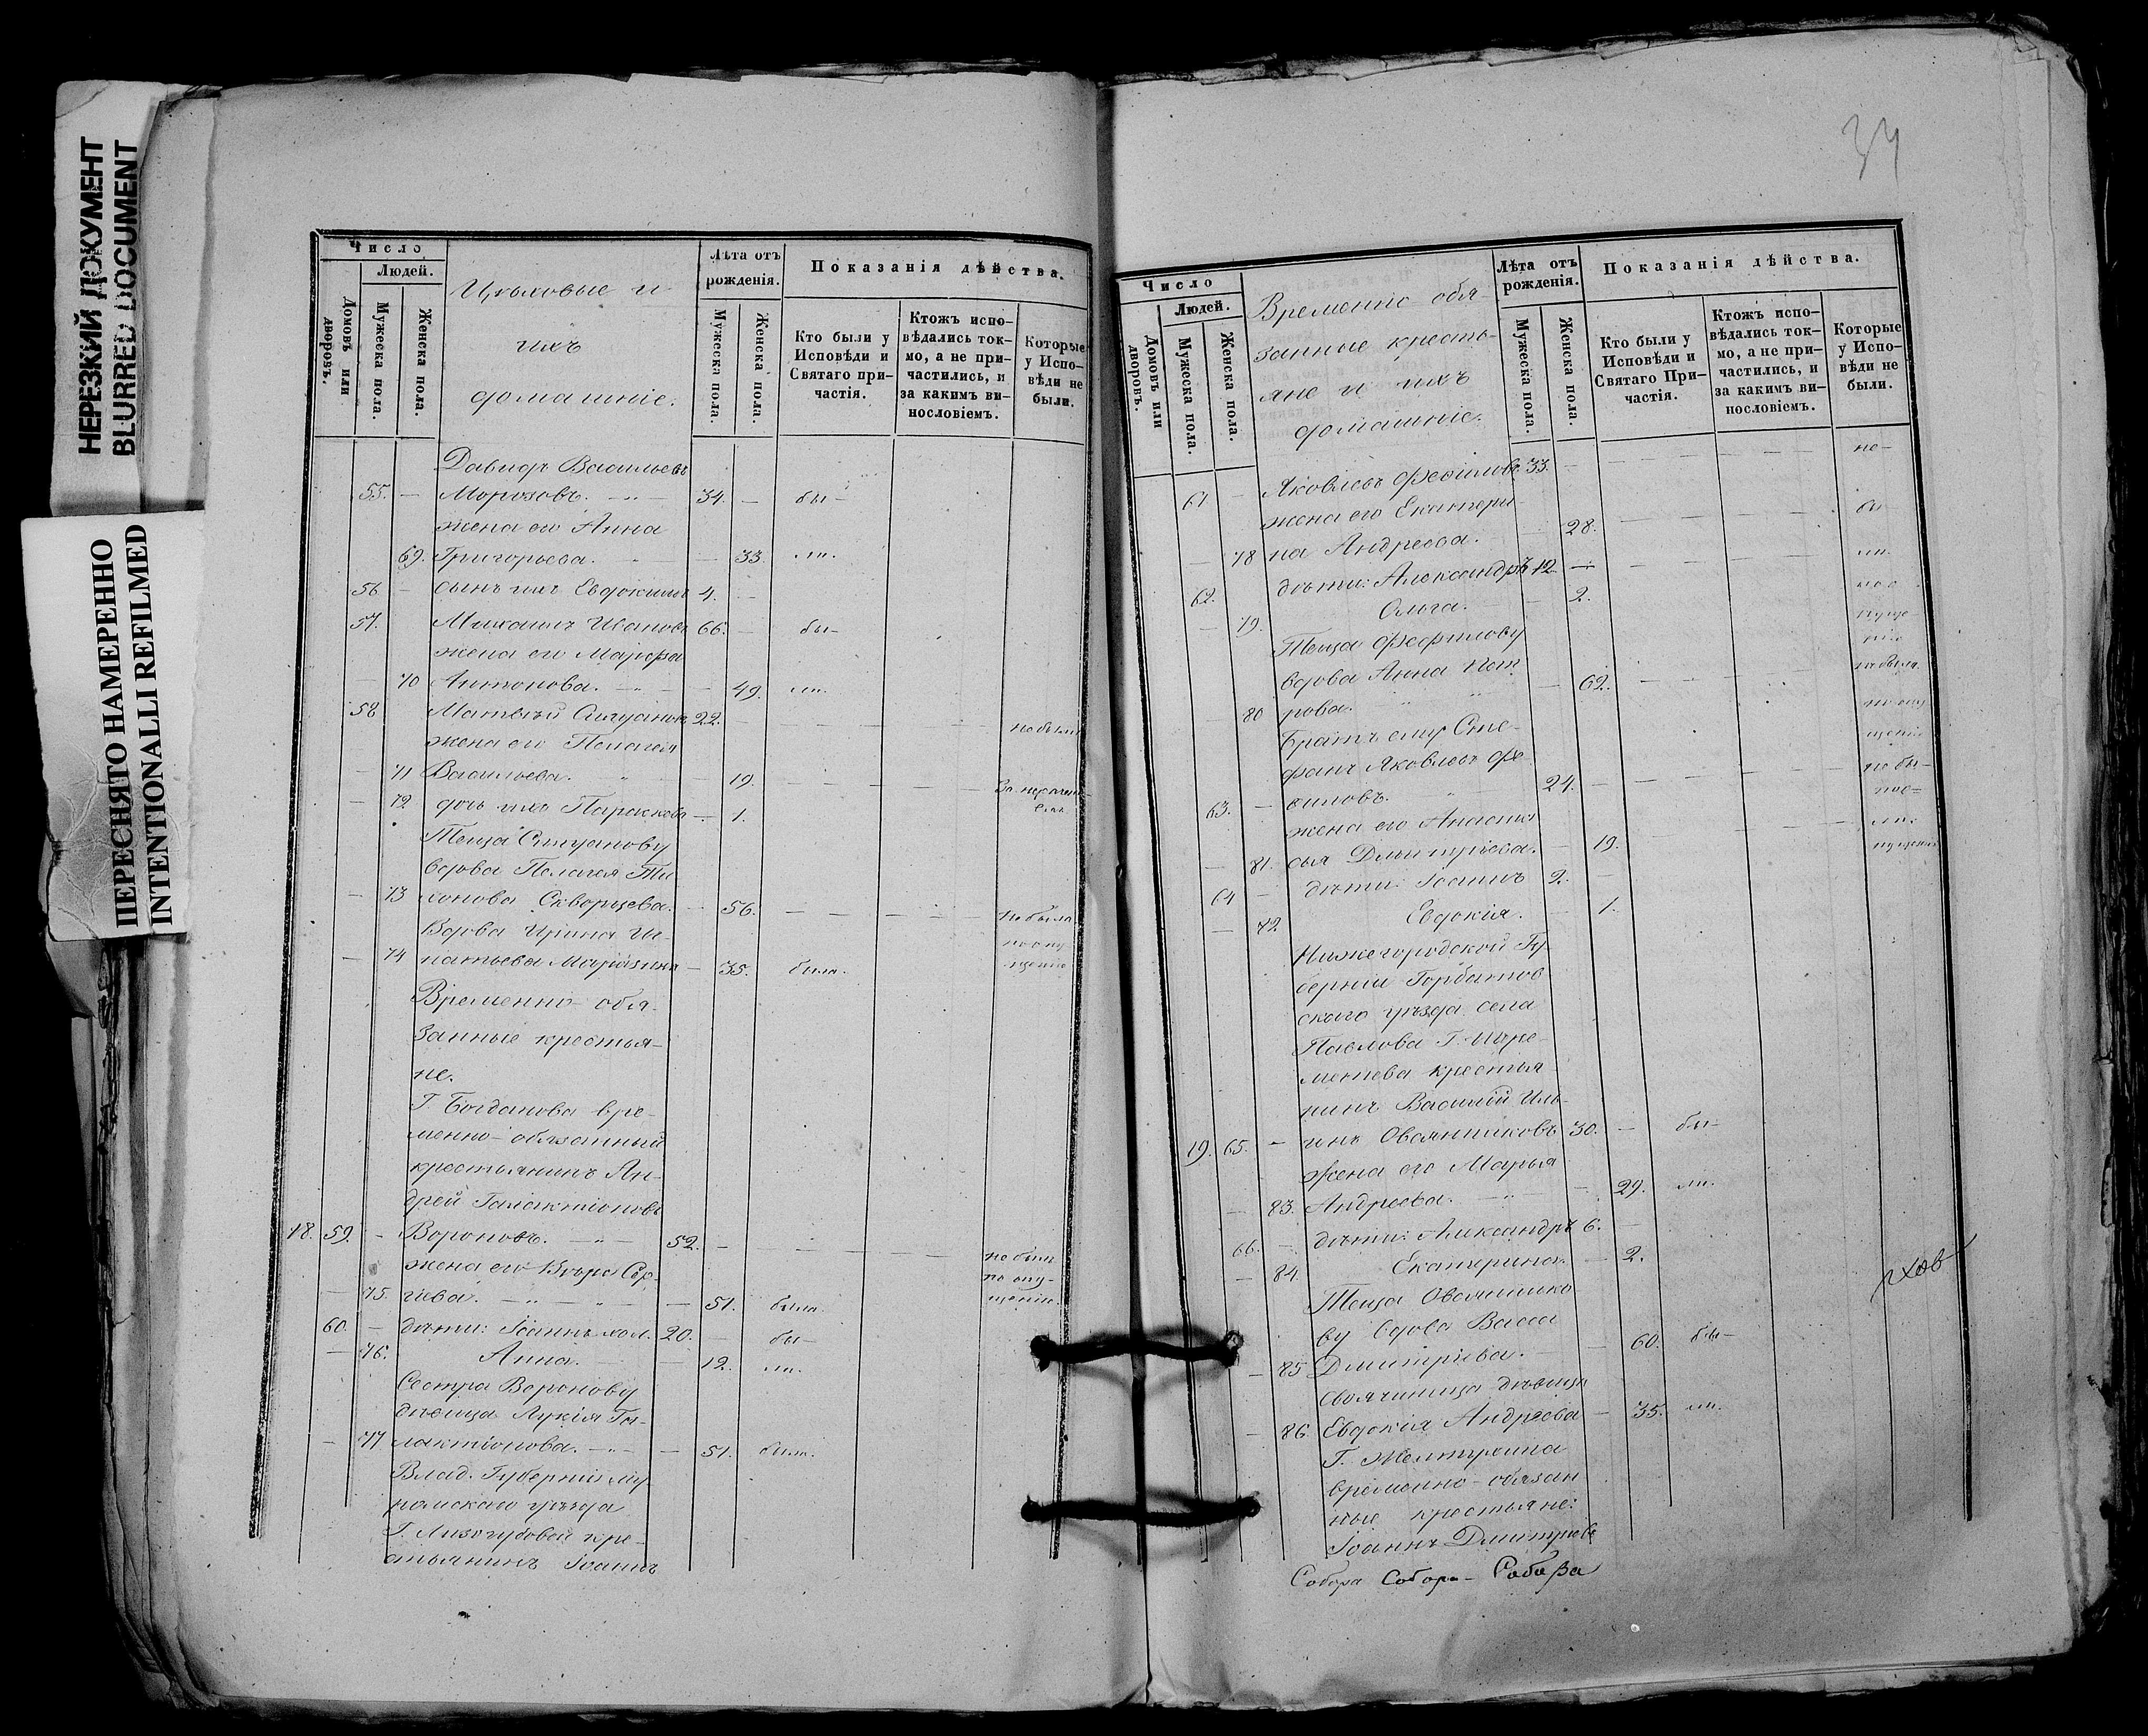 НЕРЕЗКИЙ ДОКУМЕНТ
BLURRED DOCUMENT
ПЕРЕСНЯТО НАМЕРЕННО
INTENTIONALLI REFILMED
Число
Людей.
Домовъ или дворовъ.
Мужеска пола.
Женска пола.
Цѣховые и
ихъ
домашніе.
Лѣта отъ
рожденія.
Мужеска пола.
Женска пола.
Показанія дѣйства.
Кто были у
Исповѣди и
Святаго при-
частія.
Ктожъ испо-
вѣдались ток-
мо, а не при-
частились, и
за какимъ ви-
нословіемъ.
Которые
у Испо-
вѣди не
были.
Давидъ Васильевъ
55. — Морозовъ. 34. — бы-
жена его Анна
69. Григорьева. — 33. ли.
56 — сынъ ихъ Евдокимъ 4. —
57. Михаилъ Ивановъ 66. — бы-
жена его Марѳа
— 70 Антонова. — 49. ли.
58 Матвѣй Силуановъ 22. — не были
жена его Пелагея
— 71 Васильева. — 19.
— 72 дочь ихъ Параскева — 1.
Теща Силуанову
вдова Пелагея Ти
— 73 хонова Скворцева. — 56. не была
по опу
щенію
Вдова Ирина Иг-
— 74 натьева — 35. была.
Временно-обя-
занные крестья-
не.
Г. Богданова вре-
менно-обязанный
крестьянинъ Ан-
дрей Галактіоновъ
18. 59. — Вороновъ. 52. — не былъ
по опу-
щенію.
жена его Вѣра Сер-
— 75. гіева. — 51. была.
60. — дѣти: Іоаннъ хол. 20. — бы-
— 76. Анна. — 12. ли.
Сестра Воронову
дѣвица Лукія Га-
— 77 лактіонова. — 51. была.
Влад. Губерніи Му
ромскаго уѣзда
Г. Лизогубовой кре-
стьянинъ Іоаннъ
34
Число
Людей.
Домовъ или дворовъ.
Мужеска пола
Женска пола.
Временно обя-
занные кресть-
яне и ихъ
домашніе.
Лѣта отъ
рожденія.
Мужеска пола.
Женска пола.
Показанія дѣйства.
Кто были у
Исповѣди и
Святаго При-
частія.
Ктожъ испо-
вѣдались ток-
мо, а не при-
частились, и
за какимъ ви-
нословіемъ.
Которые
у Испо-
вѣди не
были.
61 — Яковлевъ 33. — не-
жена его Екатери
— 78 на Андреева. — 28. бы
62. дѣти: Александръ 12 — ли.
— 79. Ольга. — 2.
Теща
вдова Анна
80 рова. — 62. не была
по опу
щенію
Братъ ему Сте-
фанъ Яковлевъ
63. — 24. — не бы-
жена его Анаста
— 81. сья Дмитріева. — 19. ли.
64 — дѣти: Іоаннъ 2. —
— 72. Евдокія. — 1.
Нижегородской Гу-
берніи Горбатов
скаго уѣзда села
Павлова Г. Шере-
метева крестья
нинъ Василій Иль-
19. 65. — инъ Овсянниковъ 30. — бы-
жена его Марья
— 83. Андреева. — 29. ли.
66. — дѣти: Александръ 6. —
— 84. Екатерина. — 2.
Теща Овсяннико
ву вдова Васса
— 85 Дмитріева. — 60. бы-
своячиница дѣвица
— 86. Евдокія Андреева — 35. ли.
Г. Желтухина
временно-обязан
ные крестьяне:
Іоаннъ Дмитріевъ
Собора Собора- Собора